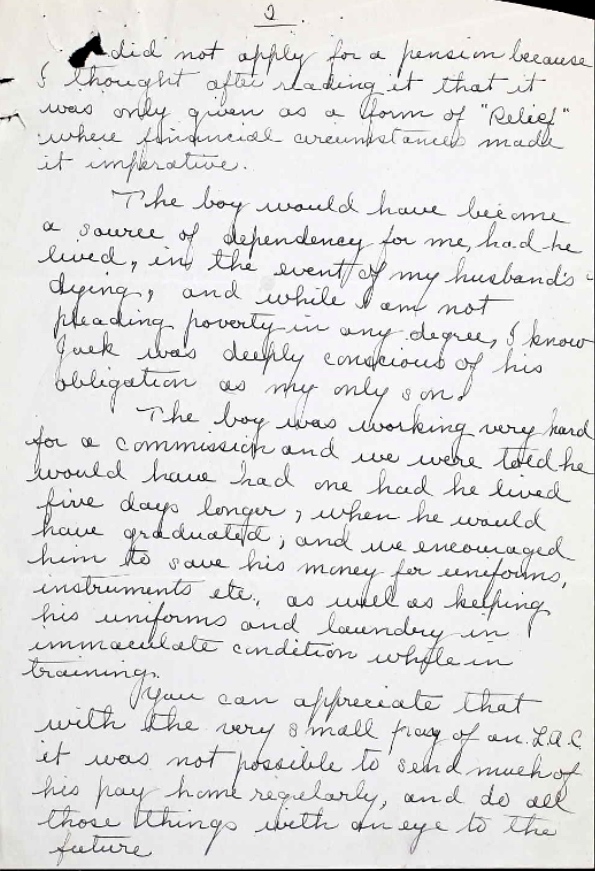 2
I did not apply for a pension because
I thought after reading it that it
was only given as a form of "Relief"
where financial circumstances made
it imperative.
The boy would have become
a source of dependency for me, had he
lived, in the event of my husband's
dying, and while I am not
pleading poverty in any degree, I know
Jack was deeply conscious of his
obligation as my only son.
The boy was working very hard
for a commission and we were told he
would have had one had he lived
five days longer, when he would
have graduated; and we encouraged
him to save his money for uniforms,
instruments etc., as well as keeping
his uniforms and laundry in
immaculate condition while in
training.
You can appreciate that
with the very small pay of an L.A.C.
it was not possible to send much of
his pay home regularly, and do all
those things with an eye to the
future